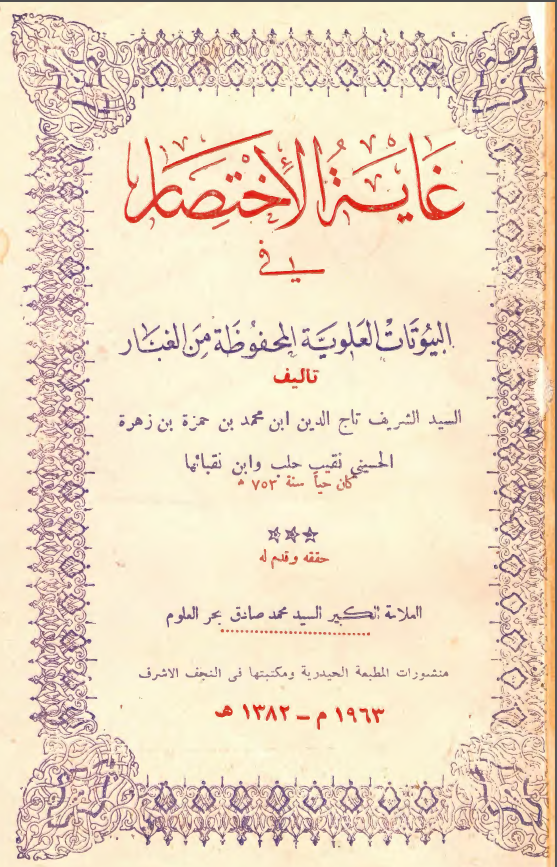 غَايَةُ الْأِخْتِصَار
في
البيُوتَات العَلويَّة المحفُوظَة مِنَ الغبَار
تاليف
السيد الشريف تاج الدين ابن محمد بن حمزة بن زهرة
الحسيني نقيب حلب وابن نقبائها
كان حياً سنة ٧٥٣ هـ
حققه وقدم له
العلامة الكبير السيد محمد صادق بحر العلوم
منشورات المطبعة الحيدرية ومكتبتها فى النجف الاشرف
١٩٦٣ م - ١٣٨٢ هـ